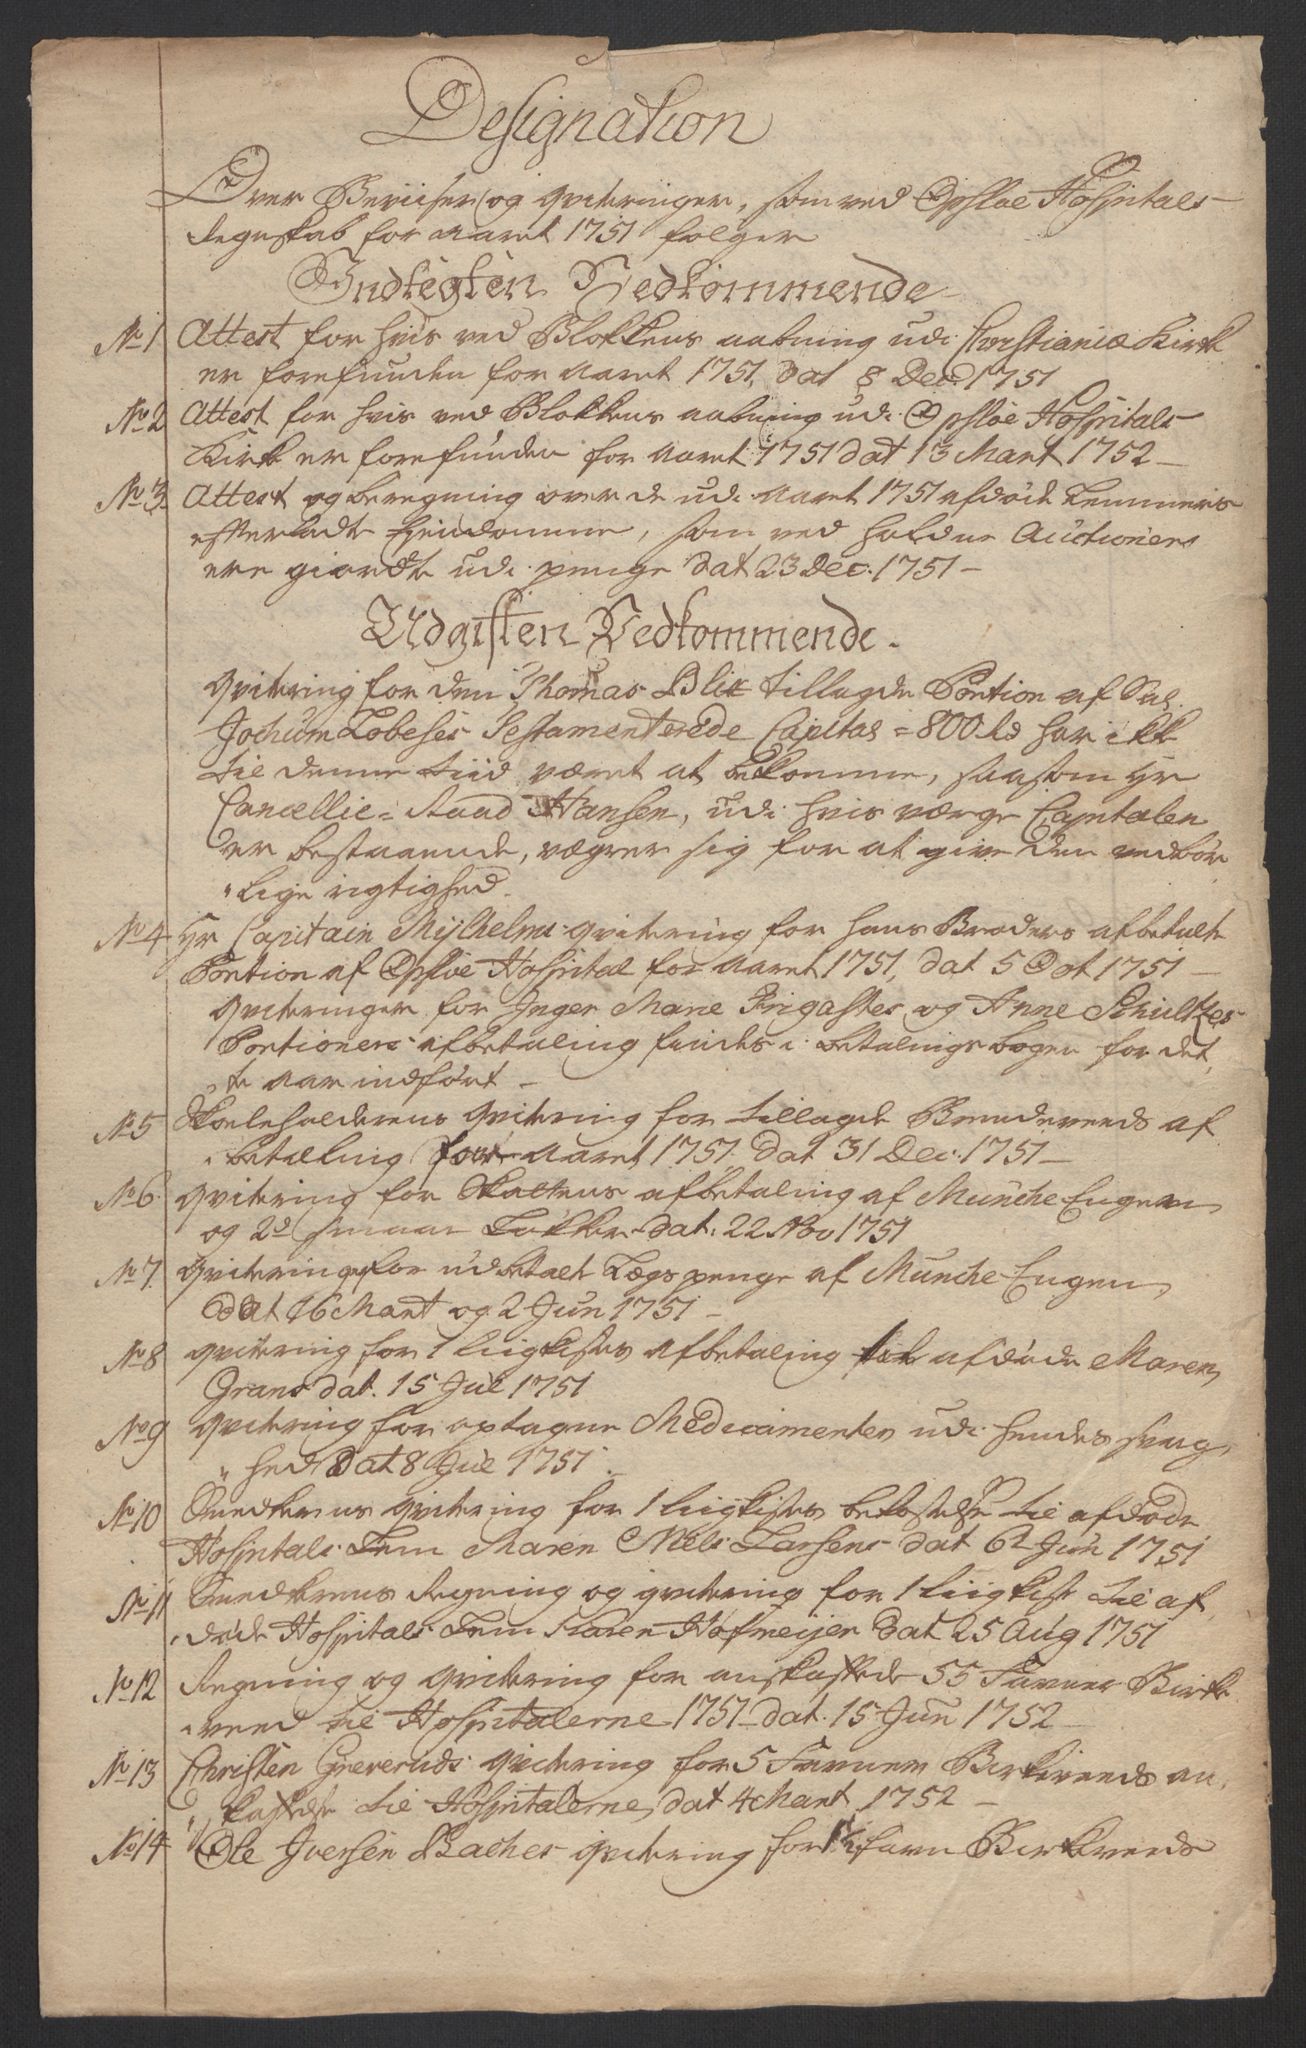 Designation
Over Beviiser og qviteringer, som ved Opsloe Hospitals
Regnskab for aaret 1751 følger
Indtegten Vedkommende
No 1 Attest for hvis ved Blokkens aabning udi Christianiæ Kirk
er forefunden for aaret 1751, dat 8 Decb 1751
No 2 Attest for hvis ved Blokkens aabning udi Opsloe Hospitals
Kirk er forefunden for aaret 1751 dat 13 Mart 1752
No 3 Attest og beregning over de udi aaret 1751 afdøde Lemmers
efterladte Eiendomme, som ved holdne Auctioner
ere giordt udi penge dat 23 Dec. 1751
Udgiften Vedkommende.
qvitering for den Thomas Blix tillagde Portion af Sal.
Jochum Lobeses Testamenterede Capital = 800 Rd har ikke
til denne tiid været at bekomme, saasom Hr
Cancellie-Raad Hansen, udi hvis værge Capitalen
er bestaaende, vægrer sig for at give den vedbør
„lige rigtighed.
No 4 Hr Capitain Mijlhelms qvitering for hans Broders afbetalte
Portion af Opsloe Hospital for aaret 1751, dat 5 Oct 1751
qviteringer for Inger Marie Fingastes og Anne Schultzes
Portioners afbetaling findes i betalings bogen for det,
te aar indført
No 5 Skoleholderens qvitering for tillagde Brendeveeds af
„betaling for aaret 1751 dat 31 Dec. 1751
No 6 qvitering for Skattens afbetaling af Munche Engen
og 2de smaae Løkker dat: 22 Nov 1751
No 7 qvitering for udbetalt Lægs penge af Munche Engen,
dat 16 Mart og 2 Jun 1751
No 8 qvitering for 1 liigkistes afbetaling til afdøde Maren
Grans dat. 15 Jul 1751
No 9 qvitering for optagne Medicamenter udi hendes svag,
„hed dat 8 Jul 1751.
No 10 Snedkerens qvitering for 1 liigkistes bekostelse til afdøde
Hospitals Lem Maren Niels Larsens dat 62 Jun 1751
No 11 Snedkerens Regning og qvitering for 1 liigkist til af
„døde Hospitals Lem Karen Hofmeijer dat 25 Aug 1751
No 12 Regning og qvitering for anskaffede 55 Favner Birke
„veed til Hospitalerne 1751 dat. 15 Jun 1752
No 13 Christen Greveruds qvitering for 5 Favner Birkeveeds an,
„skaffelse til Hospitalerne, dat 4 Mart 1752
No 14 Ole Iversen Baches qvitering for 1½ favn Birkeveeds